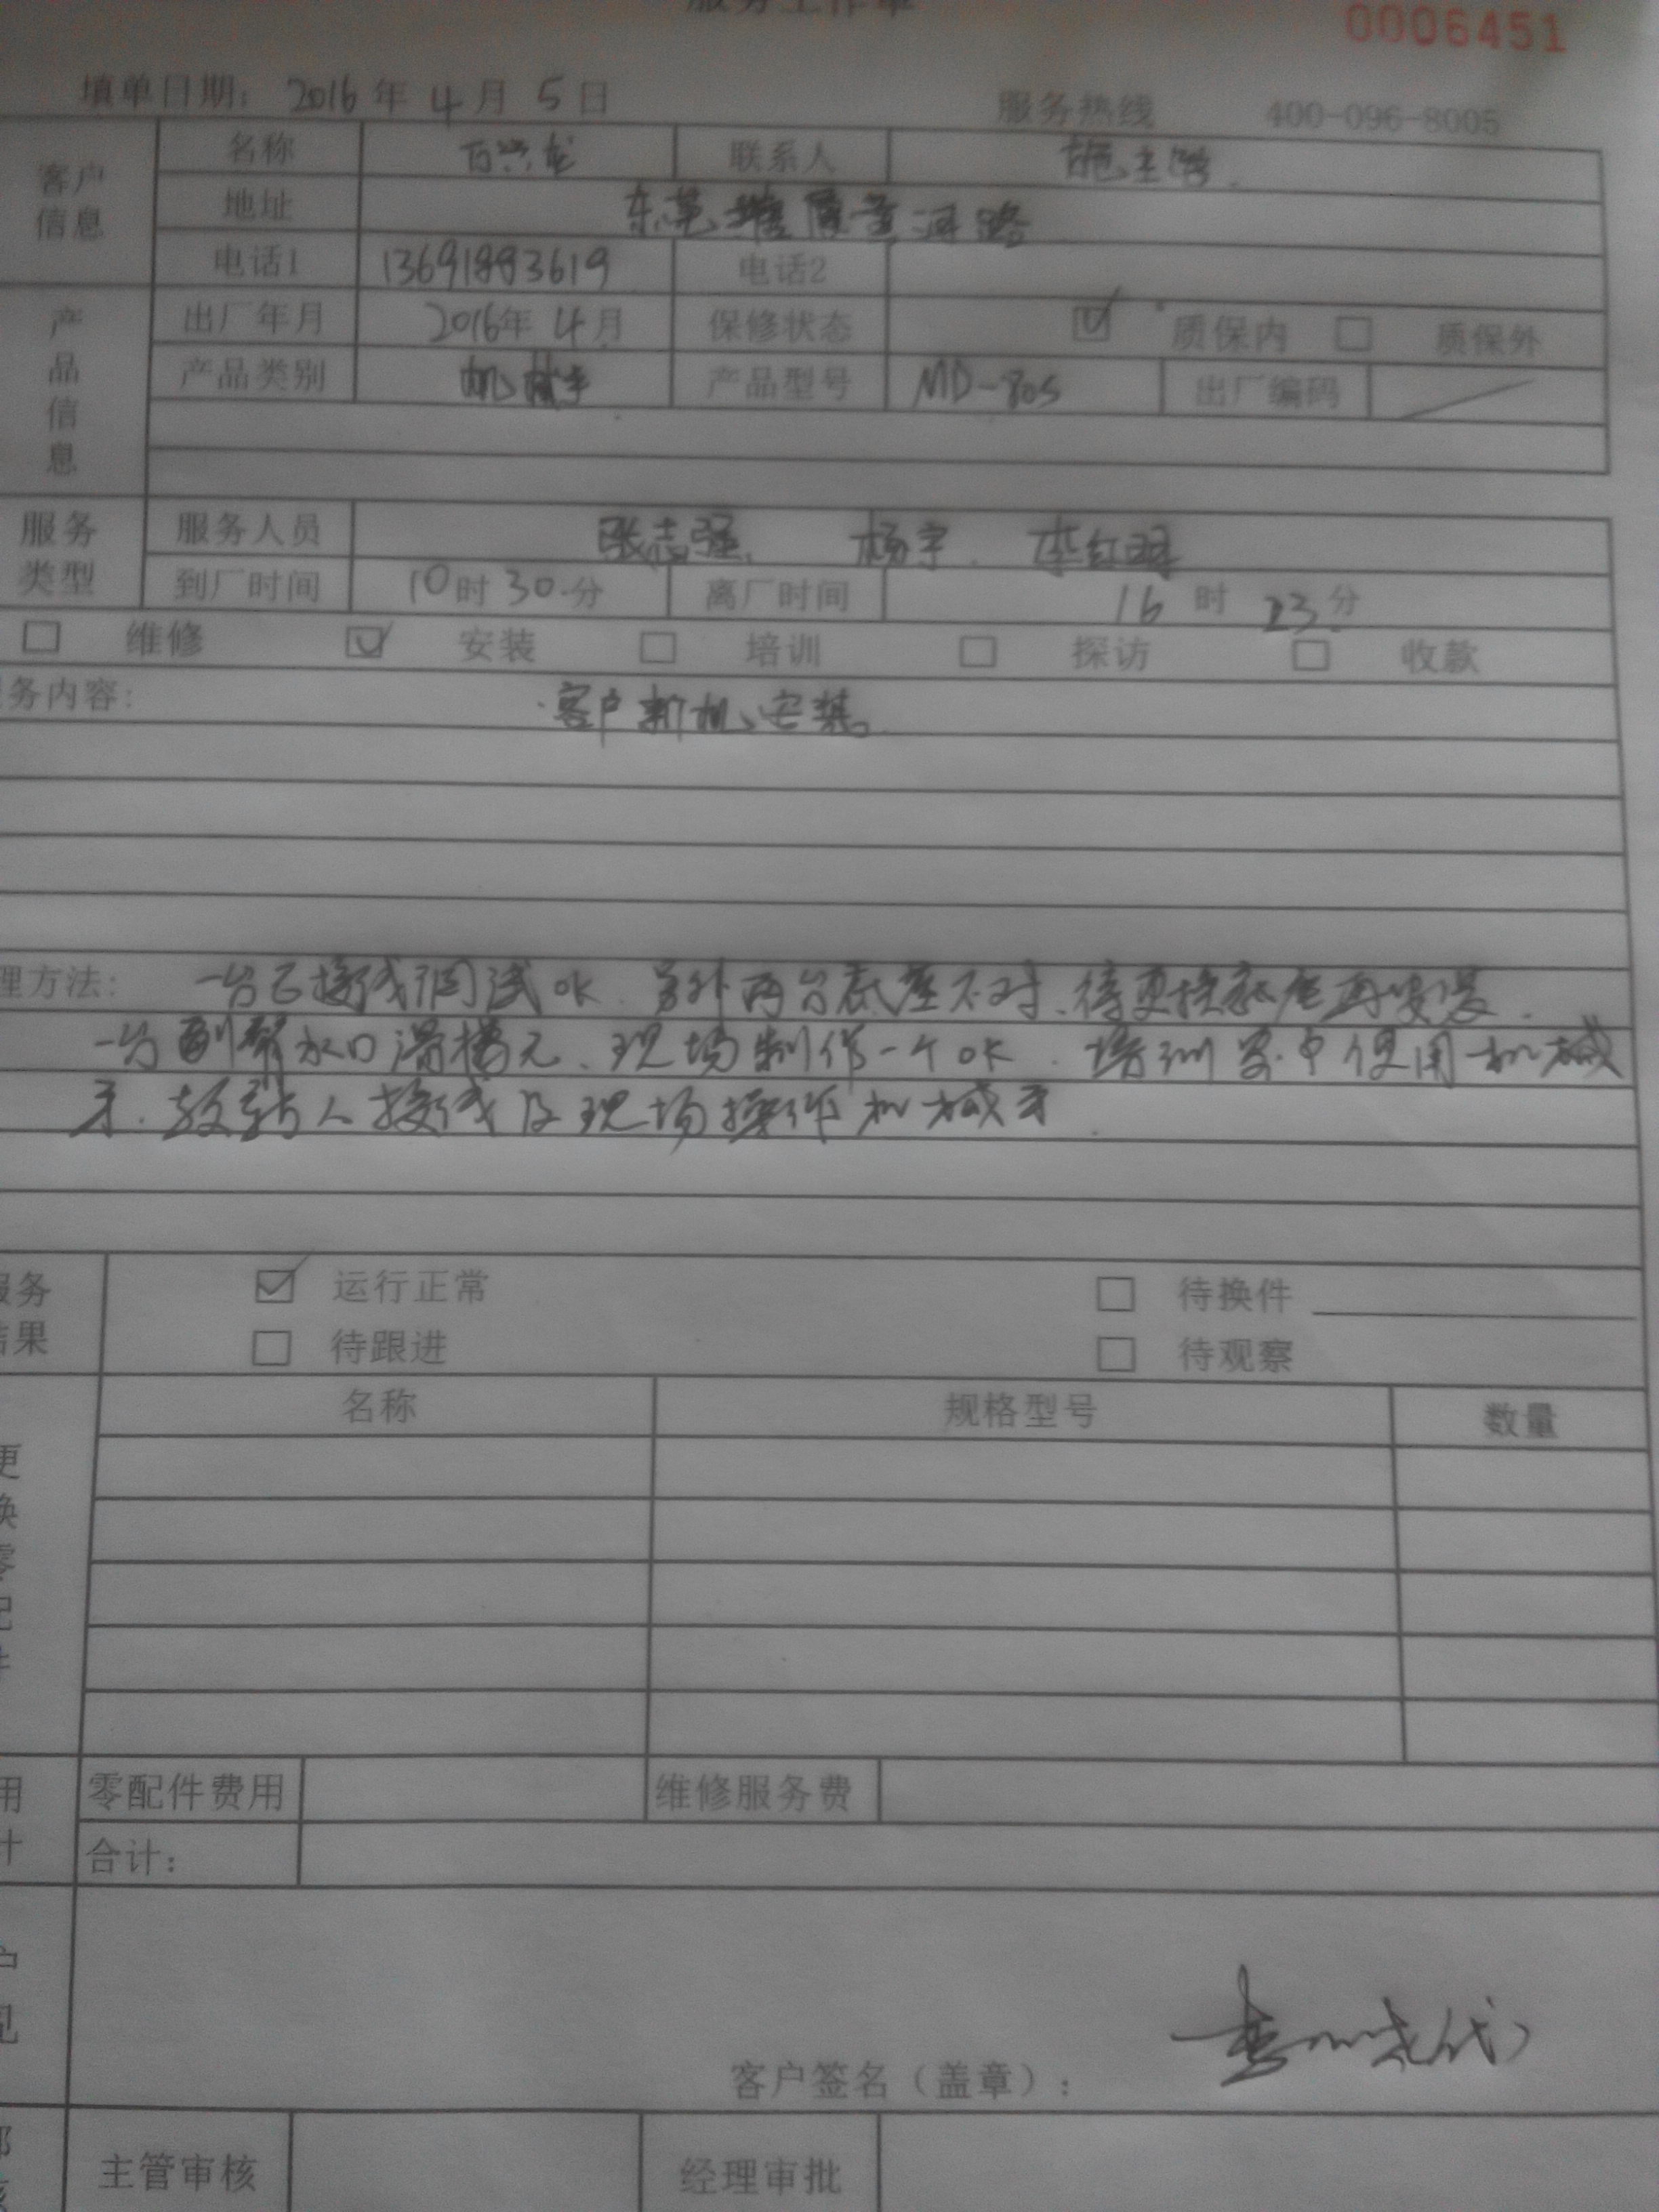 服务工作单
0006451
填单日期: 2016年4月5日 服务热线 400-096-8005
客户信息 名称 百兴龙 联系人
地址 东莞 黄河路
电话1 13691893619 电话2
产品信息 出厂年月 2016年4月 保修状态 质保内 质保外
产品类别 机械手 产品型号 MD-80S 出厂编码
服务类型 服务人员 张志强、 杨宇. 李红
到厂时间 10时30分 离厂时间 16时23分
维修 安装 培训 探访 收款
务内容: 客户新机安装。
理方法: 一台已接线调试OK. 另外两台底座不对、待更换底座再安装.
一台副臂水口滑槽无、现场制作一个OK. 培训客户使用机械
手. 教 人接线及现场操作机械手.
服务结果 运行正常 待换件
待跟进 待观察
更换零配件 名称 规格型号 数量
用计 零配件费用 维修服务费
合计:
户见
客户签名（盖章）:
主管审核 经理审批